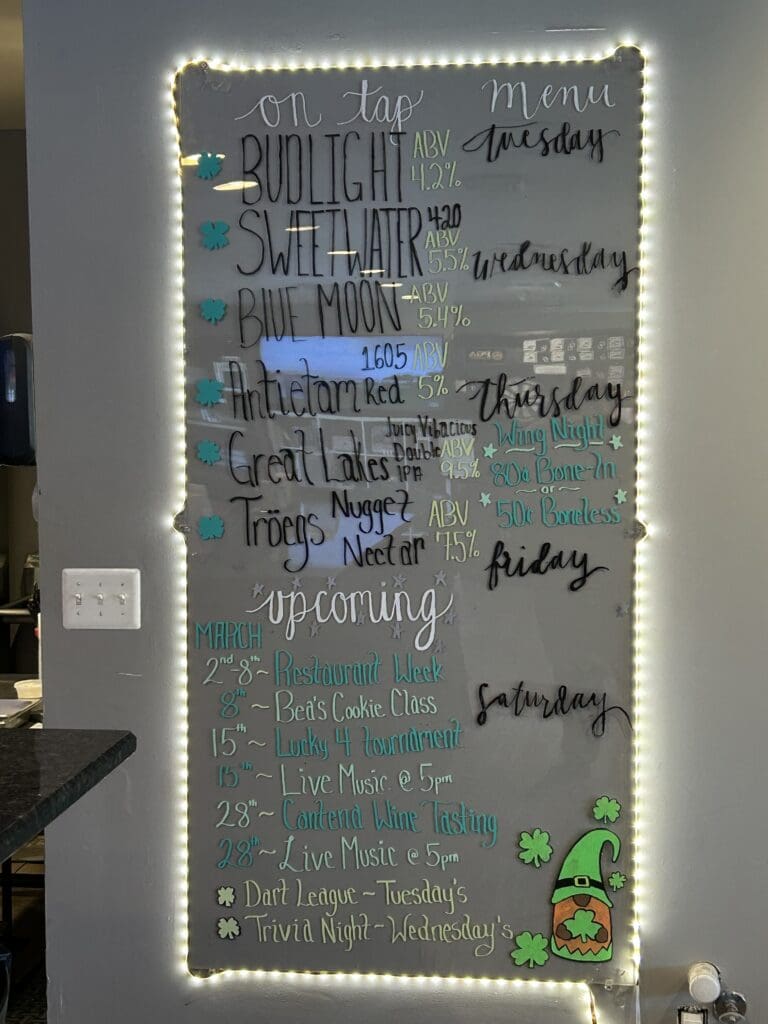 on tap
BUDLIGHT ABV 4.2%
SWEETWATER 420 ABV 5.5%
BLUE MOON ABV 5.4%
Antietam 1605 Red ABV 5%
Great Lakes Juicy Vibacious Double IPA ABV 9.5%
Tröegs Nugget Nectar ABV 7.5%
Menu
Tuesday
Wednesday
Thursday
Wing Night
80¢ Bone-In
~ or ~
50¢ Boneless
friday
Saturday
upcoming
MARCH
2nd-8th ~ Restaurant Week
8th ~ Bea's Cookie Class
15th ~ Lucky 4 tournament
15th ~ Live Music @ 5pm
28th ~ Contend Wine Tasting
28th ~ Live Music @ 5pm
Dart League ~ Tuesday's
Trivia Night ~ Wednesday's